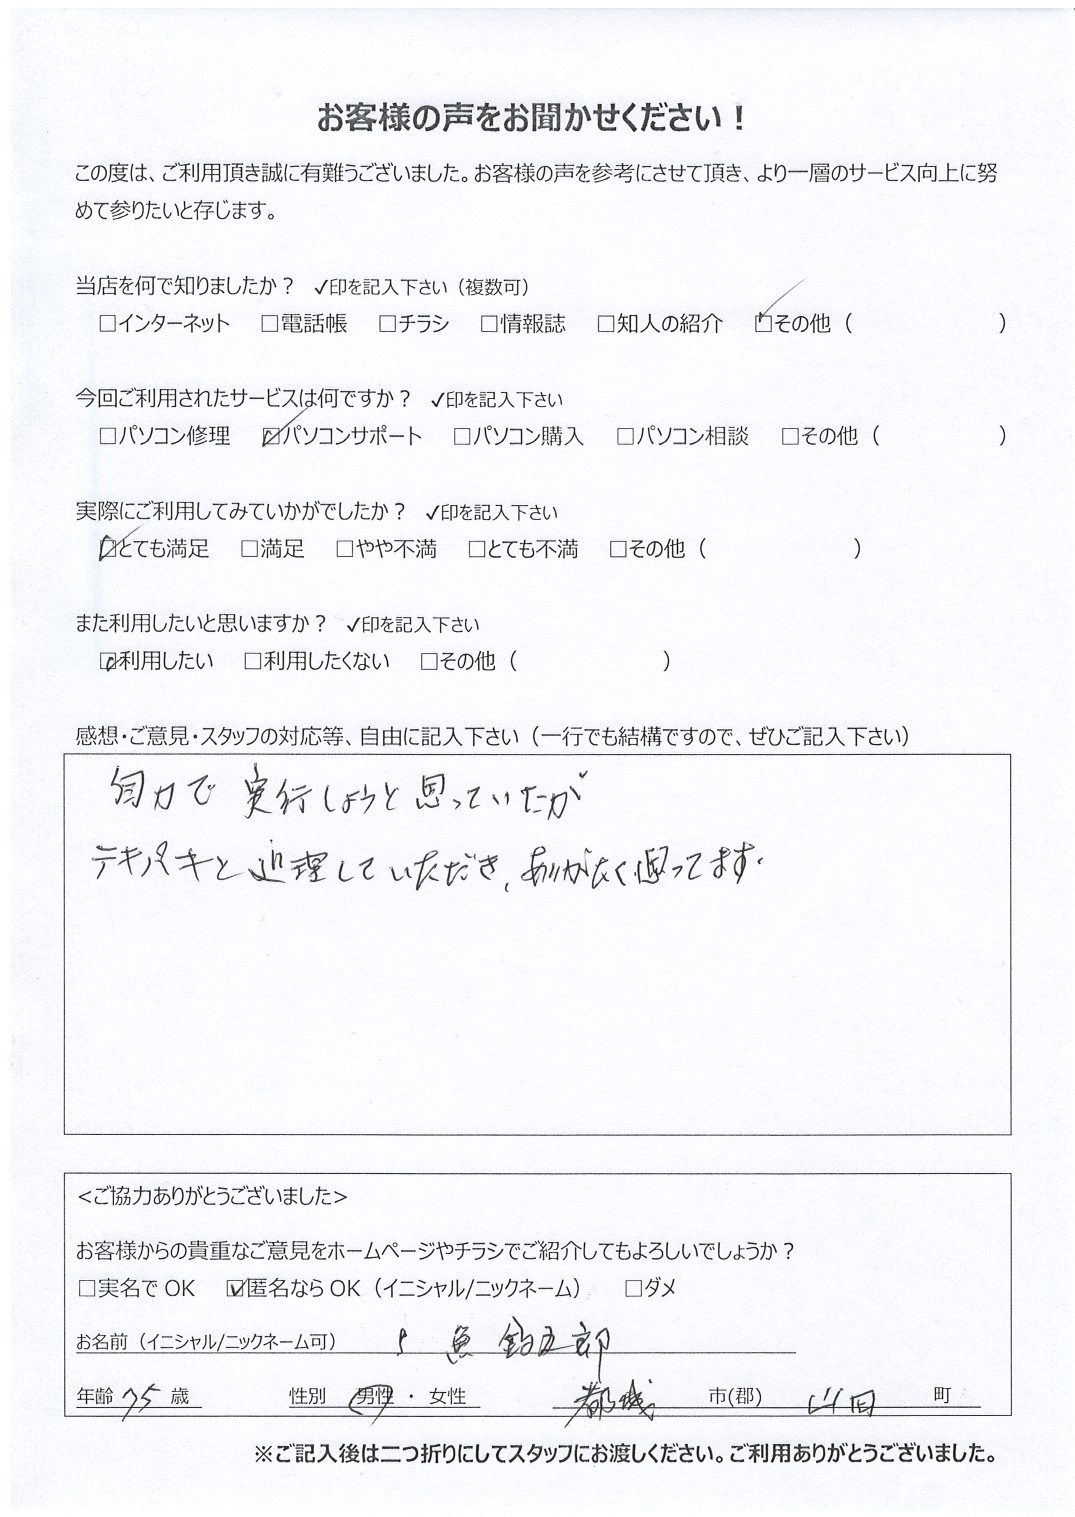 お客様の声をお聞かせください！
この度は、ご利用頂き誠に有難うございました。お客様の声を参考にさせて頂き、より一層のサービス向上に努
めて参りたいと存じます。
当店を何で知りましたか？ ✓印を記入下さい（複数可）
□インターネット □電話帳 □チラシ □情報誌 □知人の紹介 ☑その他（ ）
今回ご利用されたサービスは何ですか？ ✓印を記入下さい
□パソコン修理 ☑パソコンサポート □パソコン購入 □パソコン相談 □その他（ ）
実際にご利用してみていかがでしたか？ ✓印を記入下さい
☑とても満足 □満足 □やや不満 □とても不満 □その他（ ）
また利用したいと思いますか？ ✓印を記入下さい
☑利用したい □利用したくない □その他（ ）
感想・ご意見・スタッフの対応等、自由に記入下さい（一行でも結構ですので、ぜひご記入下さい）
自力で実行しようと思っていたが
テキパキと処理していただき、ありがたく思ってます.
<ご協力ありがとうございました>
お客様からの貴重なご意見をホームページやチラシでご紹介してもよろしいでしょうか？
□実名で OK ☑匿名なら OK（イニシャル/ニックネーム） □ダメ
お名前（イニシャル/ニックネーム可） 魚 釣五郎
年齢 75 歳 性別 男性 ・ 女性 都城 市(郡) 山田 町
※ご記入後は二つ折りにしてスタッフにお渡しください。ご利用ありがとうございました。